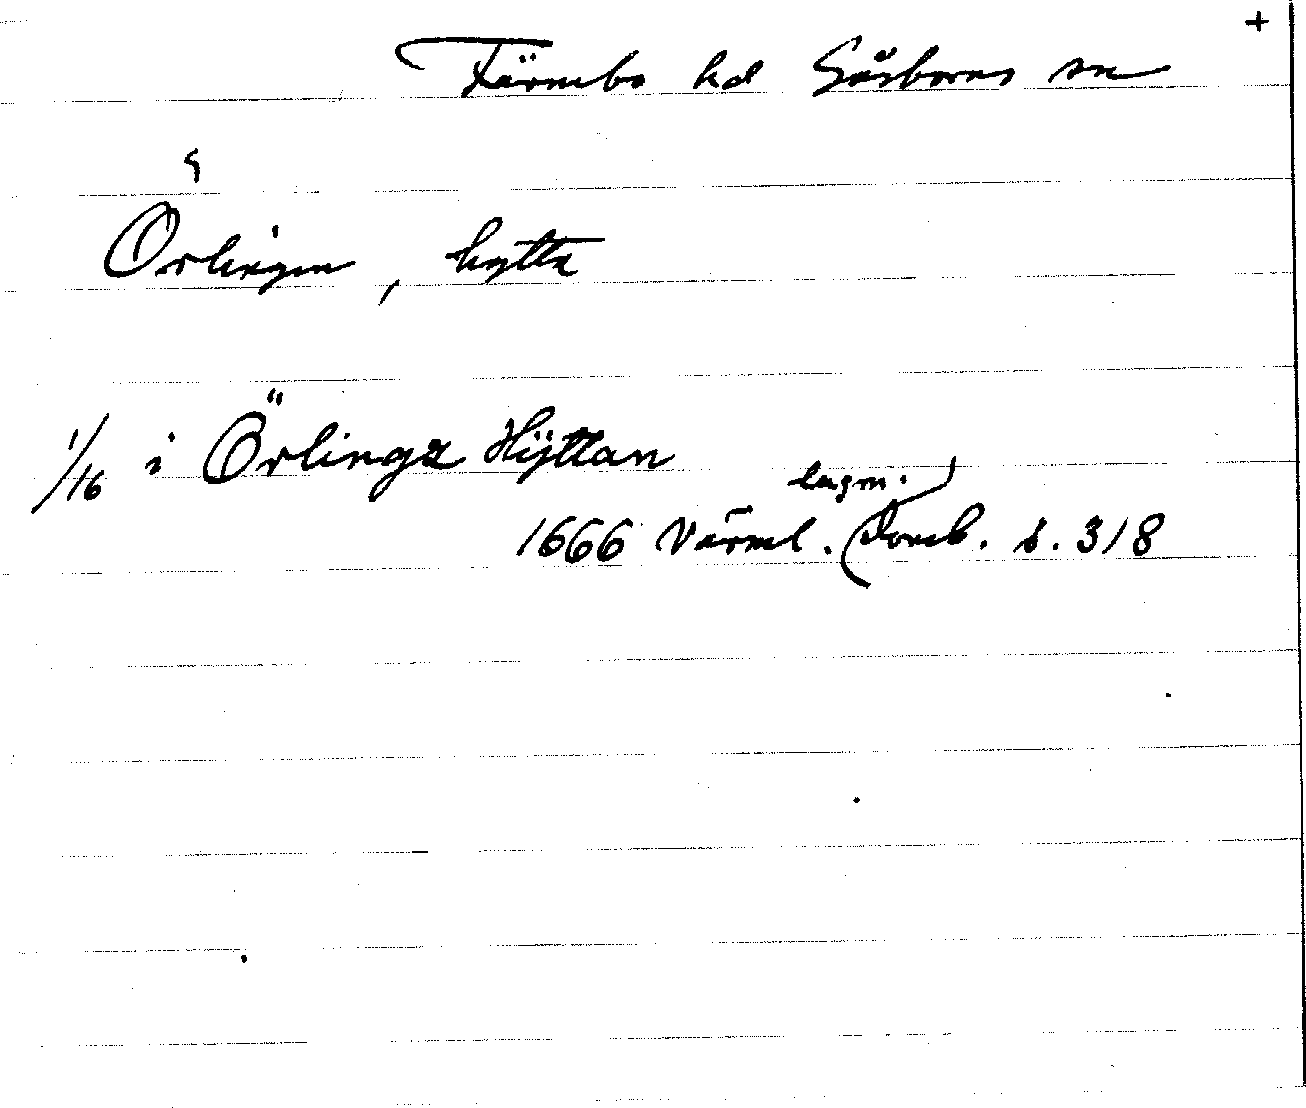 +
Färnebo hd Gåsborns sn
Örlingen, hytta
1/16 i Örlinga Hÿttan
lagm.
1666 Värml. Domb. s. 318